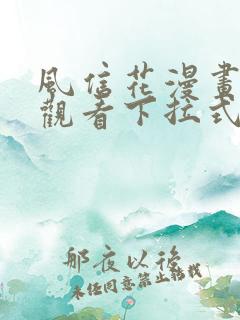 風信花漫畫
觀看下拉式
那夜以後
未經同意禁止轉載